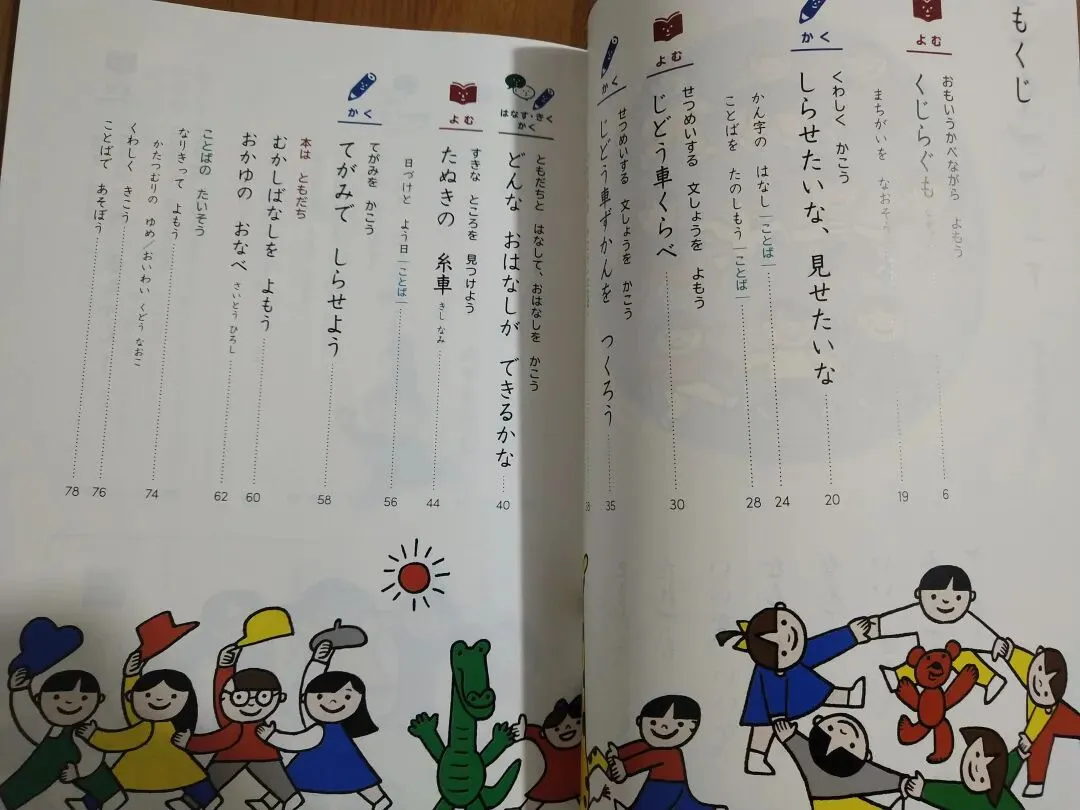 もくじ
よむ
おもいうかべながら よもう
くじらぐも
6
まちがいを なおそう
19
かく
くわしく かこう
しらせたいな、見せたいな
20
かん字の はなし ことば
24
ことばを たのしもう ことば
28
よむ
せつめいする 文しょうを よもう
じどう車くらべ
30
かく
せつめいする 文しょうを かこう
じどう車ずかんを つくろう
35
38
はなす・きく
かく
ともだちと はなして、おはなしを かこう
どんな おはなしが できるかな
40
よむ
すきな ところを 見つけよう
たぬきの 糸車 きし なみ
44
日づけと よう日 ことば
56
かく
てがみを かこう
てがみで しらせよう
58
本は ともだち
むかしばなしを よもう
60
おかゆの おなべ さいとう ひろし
62
ことばの たいそう
なりきって よもう
かたつむりの ゆめ/おいわい くどう なおこ
74
くわしく きこう
76
ことばで あそぼう
78